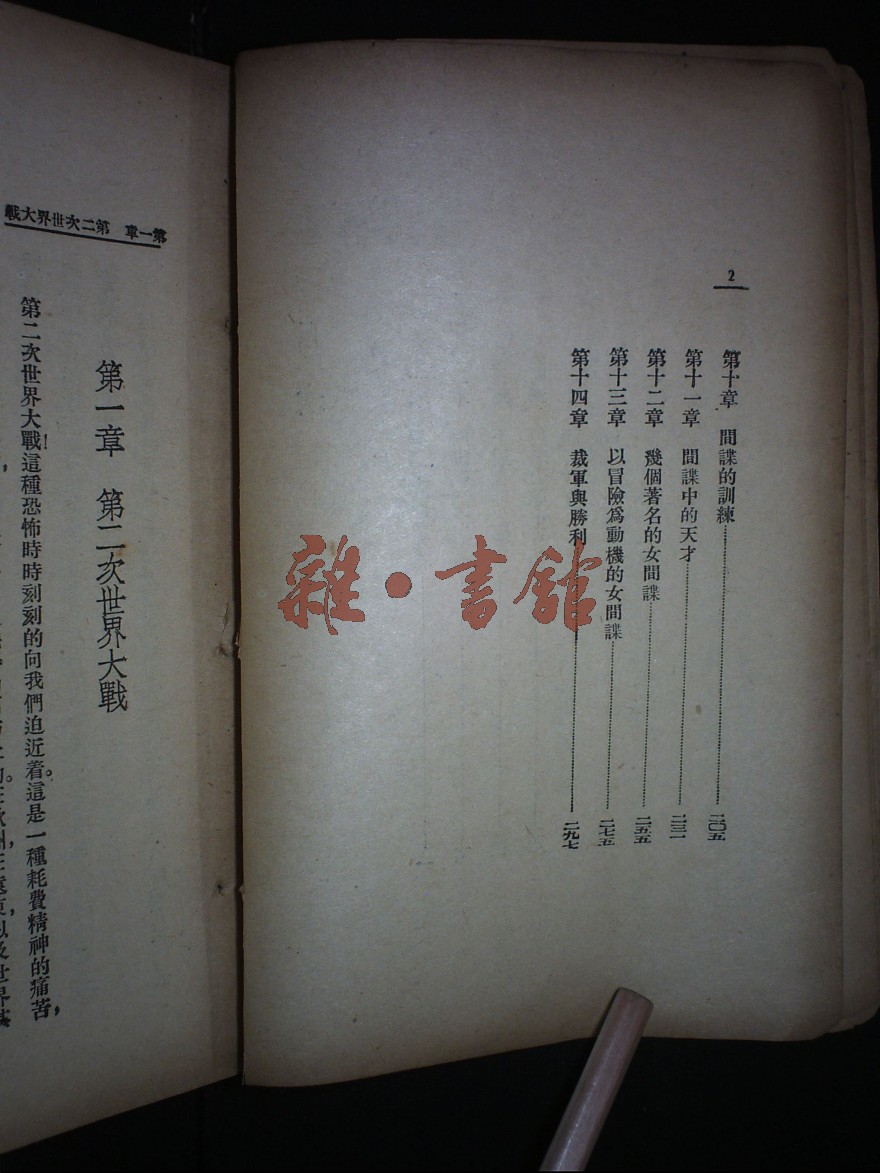 2
第十章　間諜的訓練……二〇五
第十一章　間諜中的天才……二三一
第十二章　幾個著名的女間諜……二五五
第十三章　以冒險爲動機的女間諜……二七五
第十四章　裁軍與勝利……二九七
雜·書館
第一章　第二次世界大戰
第一章　第二次世界大戰
第二次世界大戰！這種恐怖時時刻刻的向我們迫近着。這是一種耗費精神的痛苦，